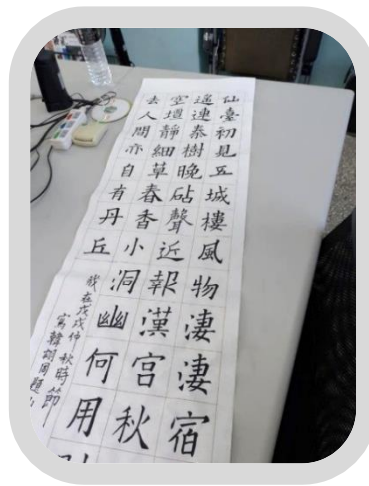 仙臺初見五城樓風物淒淒宿
遙連秦樹晚砧聲近報漢宮秋
空壇靜細草春香小洞幽何用
去人間亦自有丹丘
歲在戊戌仲秋時節
寫韓翃同題